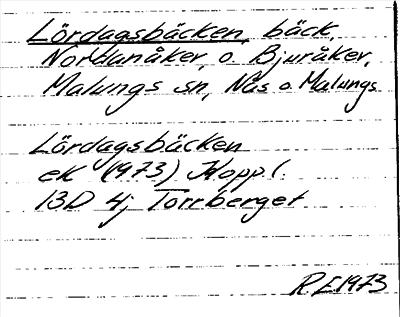 Lördagsbäcken, bäck,
Nordanåker o. Bjuråker,
Malungs sn, Nås o. Malungs
Lördagsbäcken
ek (1973) Hoppl.
13D 4j Torrberget
RE 1973